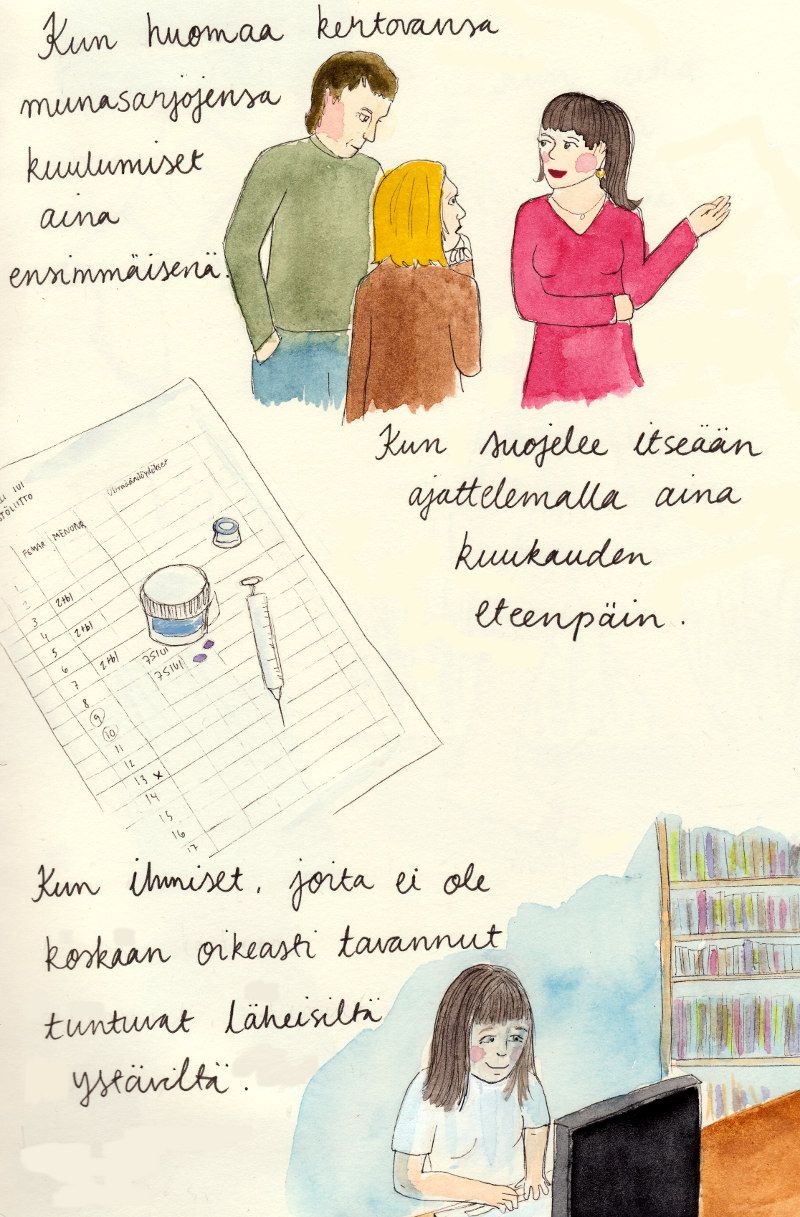 Kun huomaa kertovansa
munasarjojensa
kuulumiset
aina
ensimmäisenä.
Kun suojelee itseään
ajattelemalla aina
kuukauden
eteenpäin.
IUI
TÖLIITTO
FEMAR MENOPUR Ultraäänilöydökset
1
2
3 2tbl
4
5 2tbl
6
7 2tbl 75IUI
8 75IUI
9
10
11
12
13 x
14
15
16
17
Kun ihmiset, joita ei ole
koskaan oikeasti tavannut
tuntuvat läheisiltä
ystäviltä.